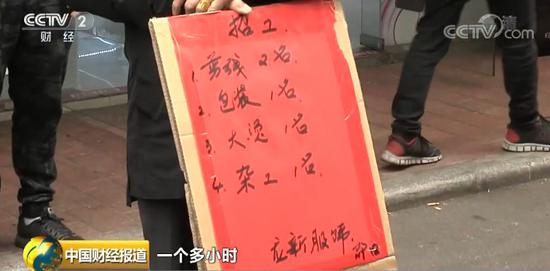 CCTV 2
财经
CCTV
.com
招工
1. 剪线 2名
2. 包装 1名
3 大烫 1名
4. 杂工 1名.
新服饰
中国财经报道
一个多小时